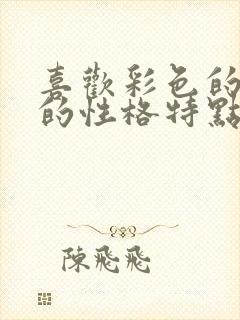 喜歡彩色的
的性格特點
陳飛飛